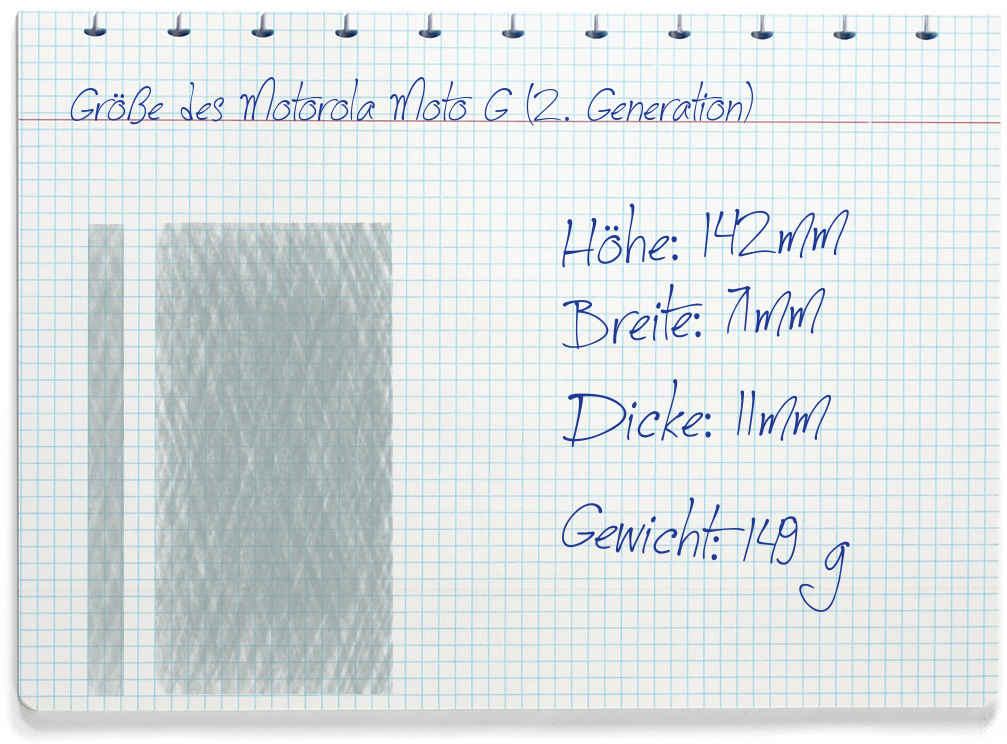 Größe des Motorola Moto G (2. Generation)
Höhe: 142mm
Breite: 71mm
Dicke: 11mm
Gewicht: 149 g